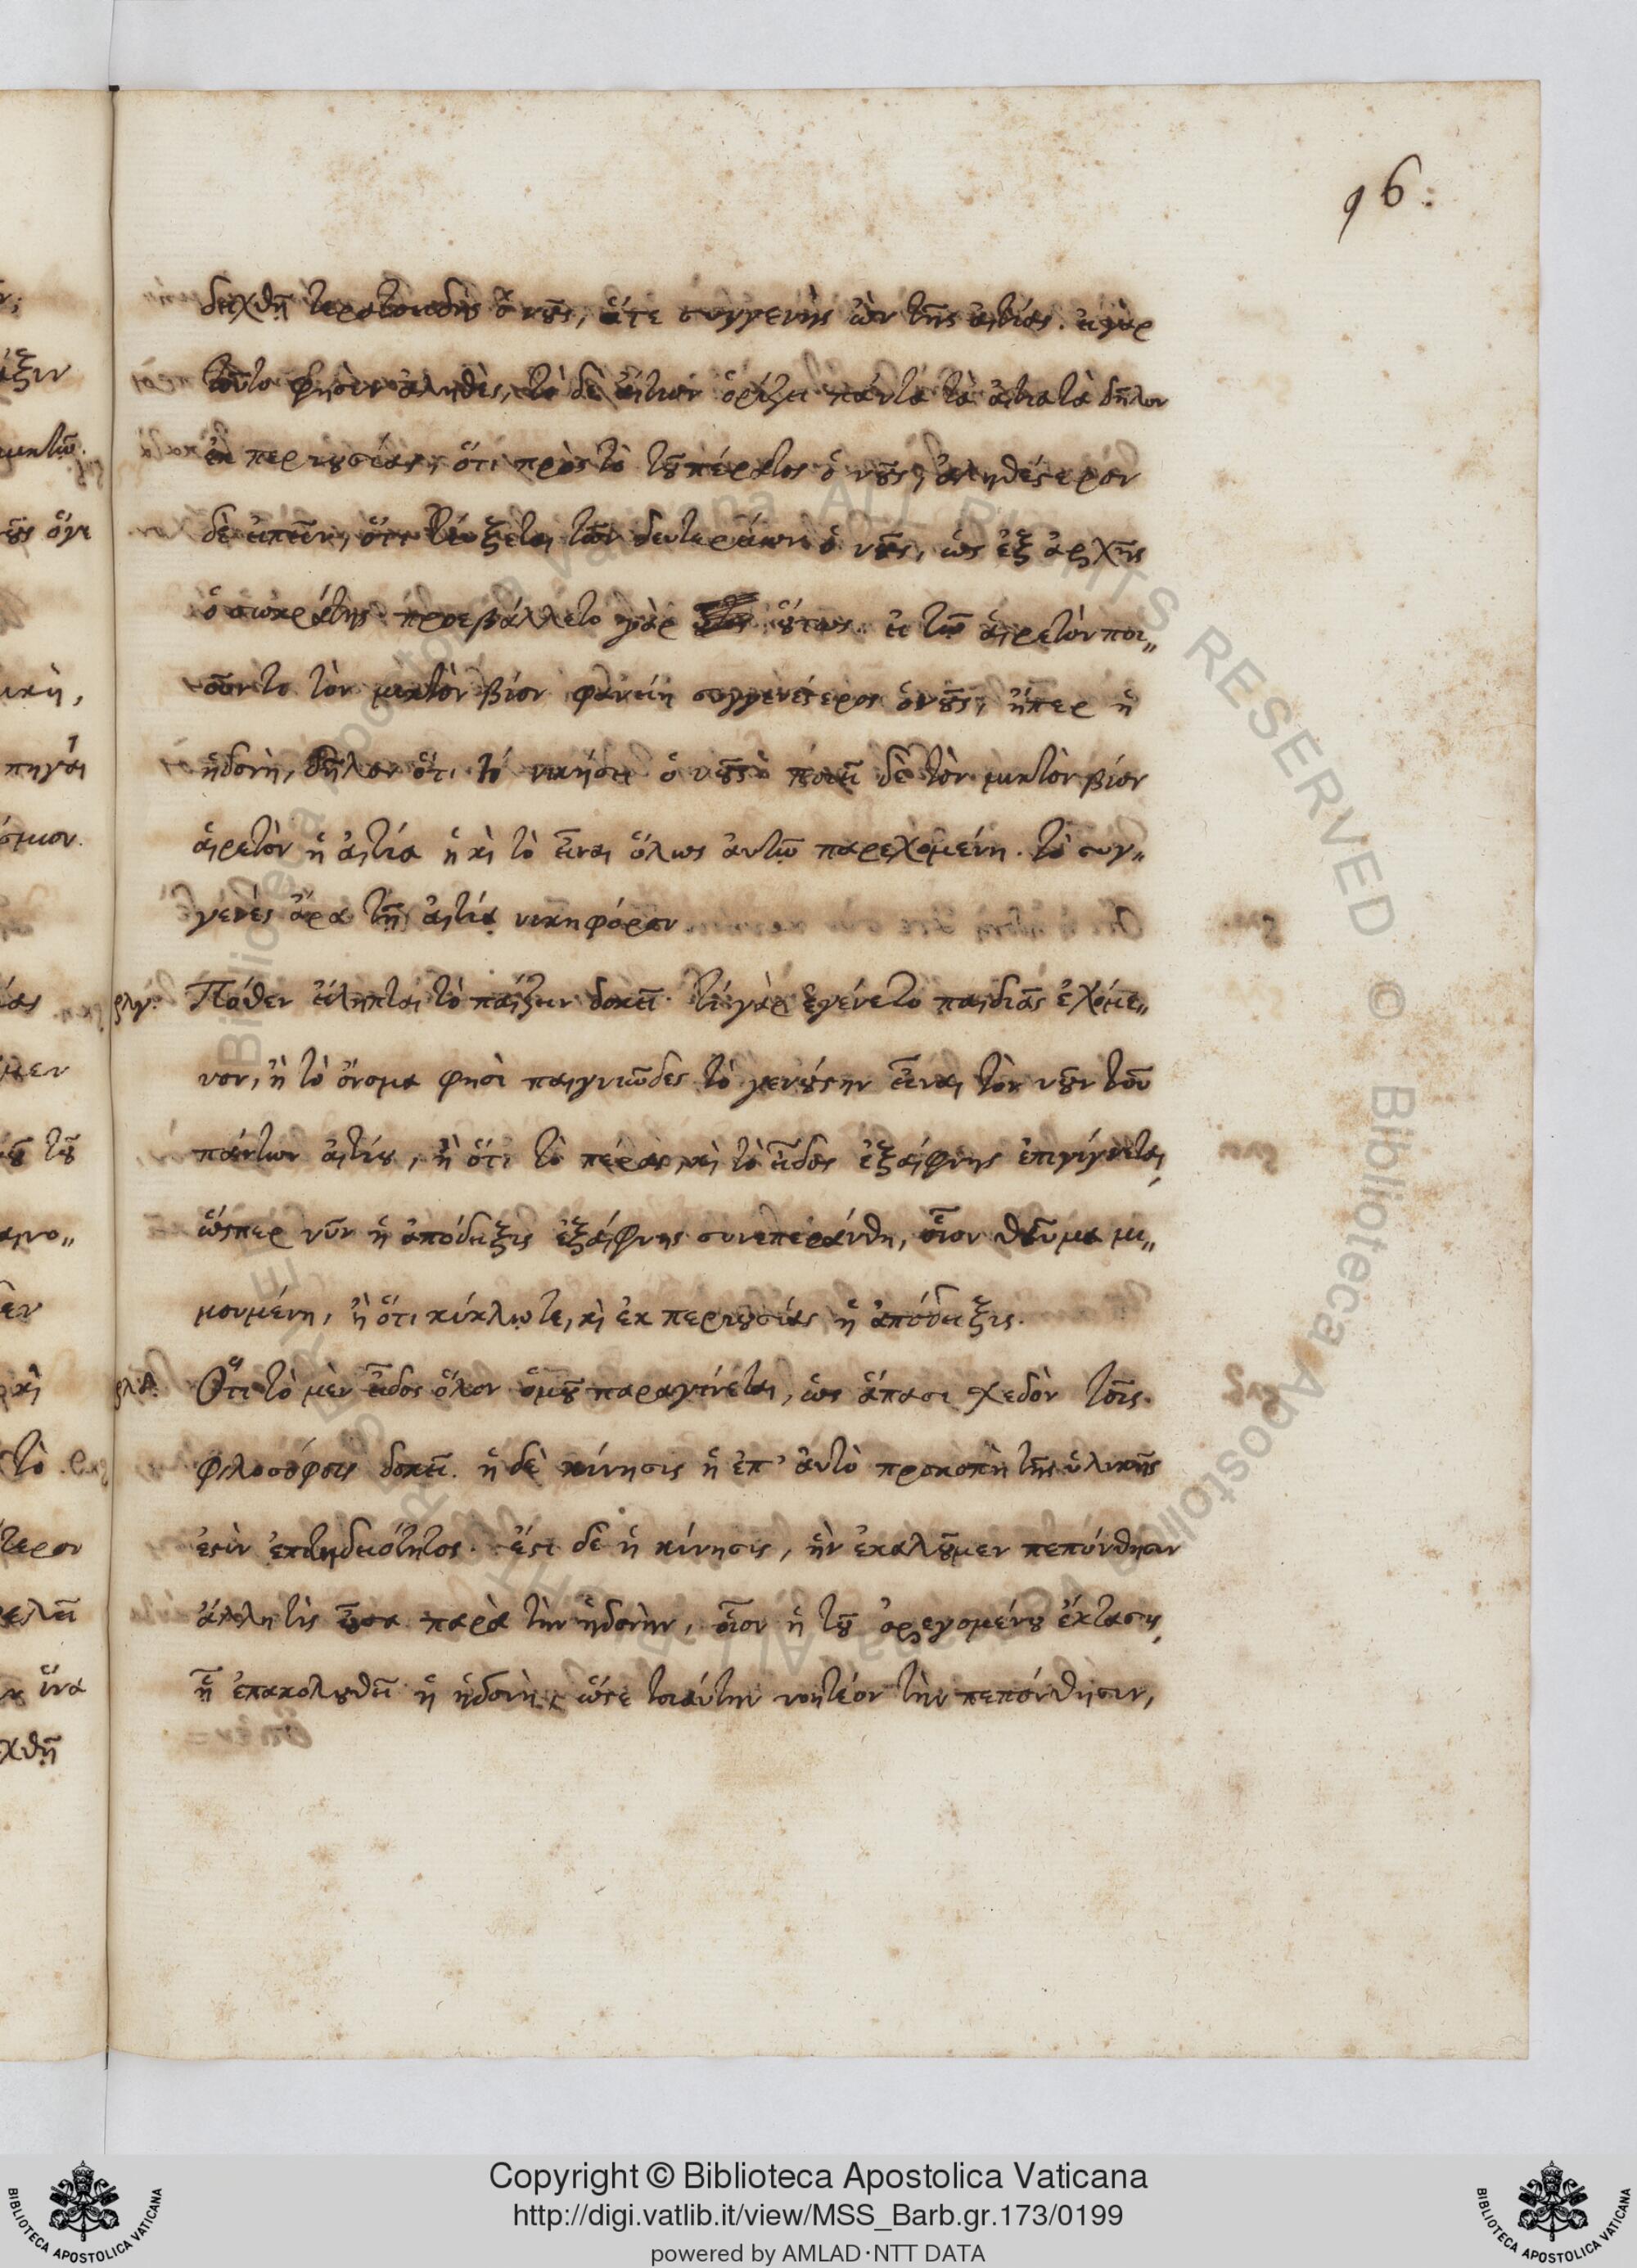 96:
δειχθῇ περατοειδὴς ὁ νοῦς, ἅτε συγγενὴς ὢν τῆς αἰτίας. εἰ γὰρ
τοῦτο φησὶν ἀληθὲς, τὸ δὲ αἴτιον ὁρίζει πάντα τὰ αἰτιατὰ δῆλον
ἐκ περιουσίας, ὅτι πρὸς τὸ τοῦ πέρατος ὁ νοῦς, ἀληθέστερον
δὲ εἰπεῖν, ὅτι τεύξεται τῶν δευτερείων ὁ νοῦς, ὡς ἐξ ἀρχῆς
ὁ σωκράτης προεβάλλετο γὰρ οὕτως. εἰ τῷ αἱρετὸν ποι„
οῦντο τὸν μικτὸν βίον φανείη συγγενέστερος ὁ νοῦς, ἤπερ ἡ
ἡδονὴ, δῆλον ὅτι νικήσει ὁ νοῦς ποιεῖ δὲ τὸν μικτὸν βίον
αἱρετὸν ἡ αἰτία ἡ κỳ τὸ εἶναι ὅλως αὐτῷ παρεχομένη. τὸ συγ„
γενὲς ἄρα τῇ αἰτίᾳ νικηφόρον
ρλγ. Πόθεν εἴληπται τὸ παίζειν δοκεῖ. τί γὰρ ἐγένετο παιδιᾶς ἐχόμε„
νον, ἢ τὸ ὄνομα φησὶ παιγνιῶδες τὸ γενούστην εἶναι τὸν νοῦν τοῦ
πάντων αἰτίου, ἢ ὅτι τὸ πέρας, κỳ τὸ εἶδος ἐξαίφνης ἐπιγίγνεται,
ὥσπερ νῦν ἡ ἀπόδειξις ἐξαίφνης συνεπεράνθη, οἷον θαῦμα μι„
μουμένη, ἢ ὅτι κύκλῳ τε, κỳ ἐκ περιουσίας ἡ ἀπόδειξις.
ρλδ. Ὅτι τὸ μὲν εἶδος ὅλον ὁμοῦ παραγίνεται, ὡς ἅπασι σχεδὸν τοῖς
φιλοσόφοις δοκεῖ. ἡ δὲ κίνησις ἡ ἐπ' αὐτὸ προκοπὴ τῆς ὑλικῆς
ἐστὶν ἐπιτηδειότητος. ἔστι δὲ ἡ κίνησις, ἣν ἐκαλοῦμεν πεπόνθησιν
ἄλλη τὶς οὖσα παρὰ τὴν ἡδονὴν, οἷον ἡ τοῦ ὀρεγομένου ἔκτασις,
ᾗ ἐπακολουθεῖ ἡ ἡδονὴ, ὥστε τοιαύτην νοητέον τὴν πεπόνθησιν,
Copyright © Biblioteca Apostolica Vaticana
http://digi.vatlib.it/view/MSS_Barb.gr.173/0199
powered by AMLAD·NTT DATA